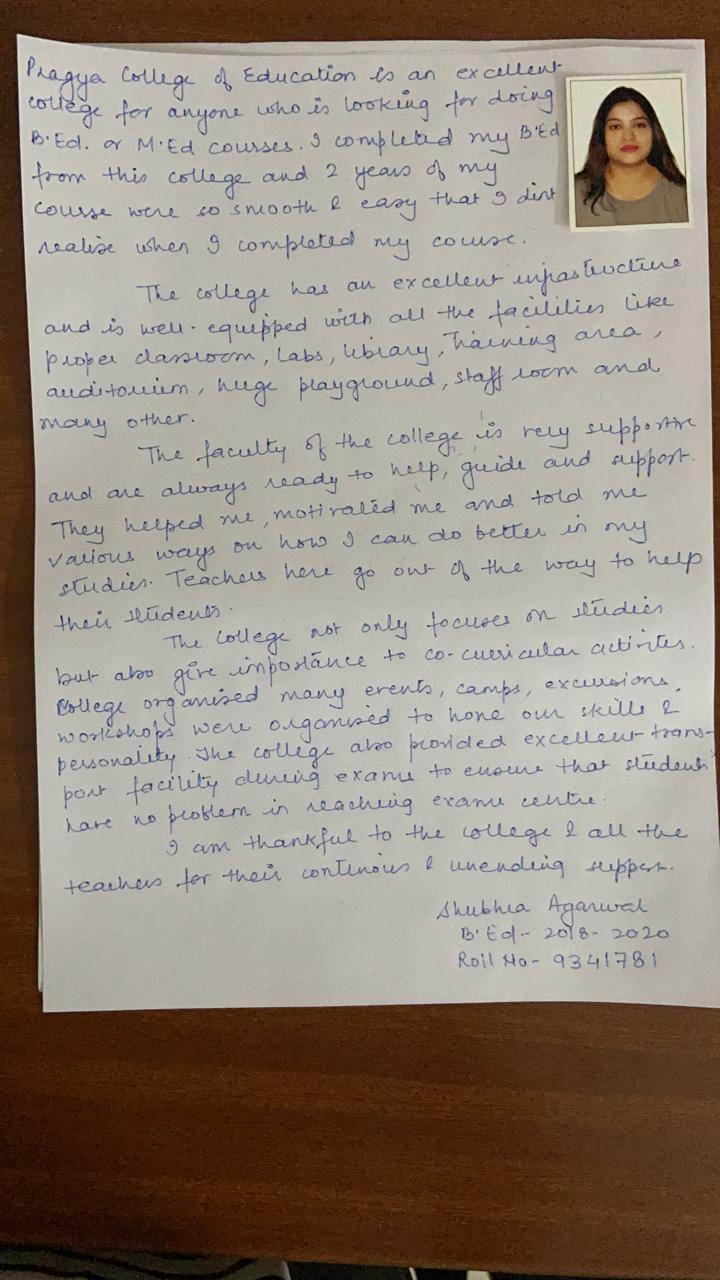 Pragya College of Education is an excellent
college for anyone who is looking for doing
B.Ed. or M.Ed courses. I completed my B'Ed
from this college and 2 years of my
course were so smooth & easy that I dint
realize when I completed my course.
The college has an excellent infrastructure
and is well-equipped with all the facilities like
proper classroom, labs, library, Training area,
auditorium, huge playground, staff room and
many other.
The faculty of the college is very supportive
and are always ready to help, guide and support.
They helped me, motivated me and told me
various ways on how I can do better in my
studies. Teachers here go out of the way to help
their students.
The College not only focuses on studies
but also give importance to co-curricular activites.
College organised many events, camps, excursions,
workshops were organised to hone our skills &
personality. The college also provided excellent trans-
port facility during exams to ensure that students
have no problem in reaching exams centre.
I am thankful to the college & all the
teachers for their continous & unending support.
Shubhra Agarwal
B.Ed- 2018-2020
Roll No- 9341781